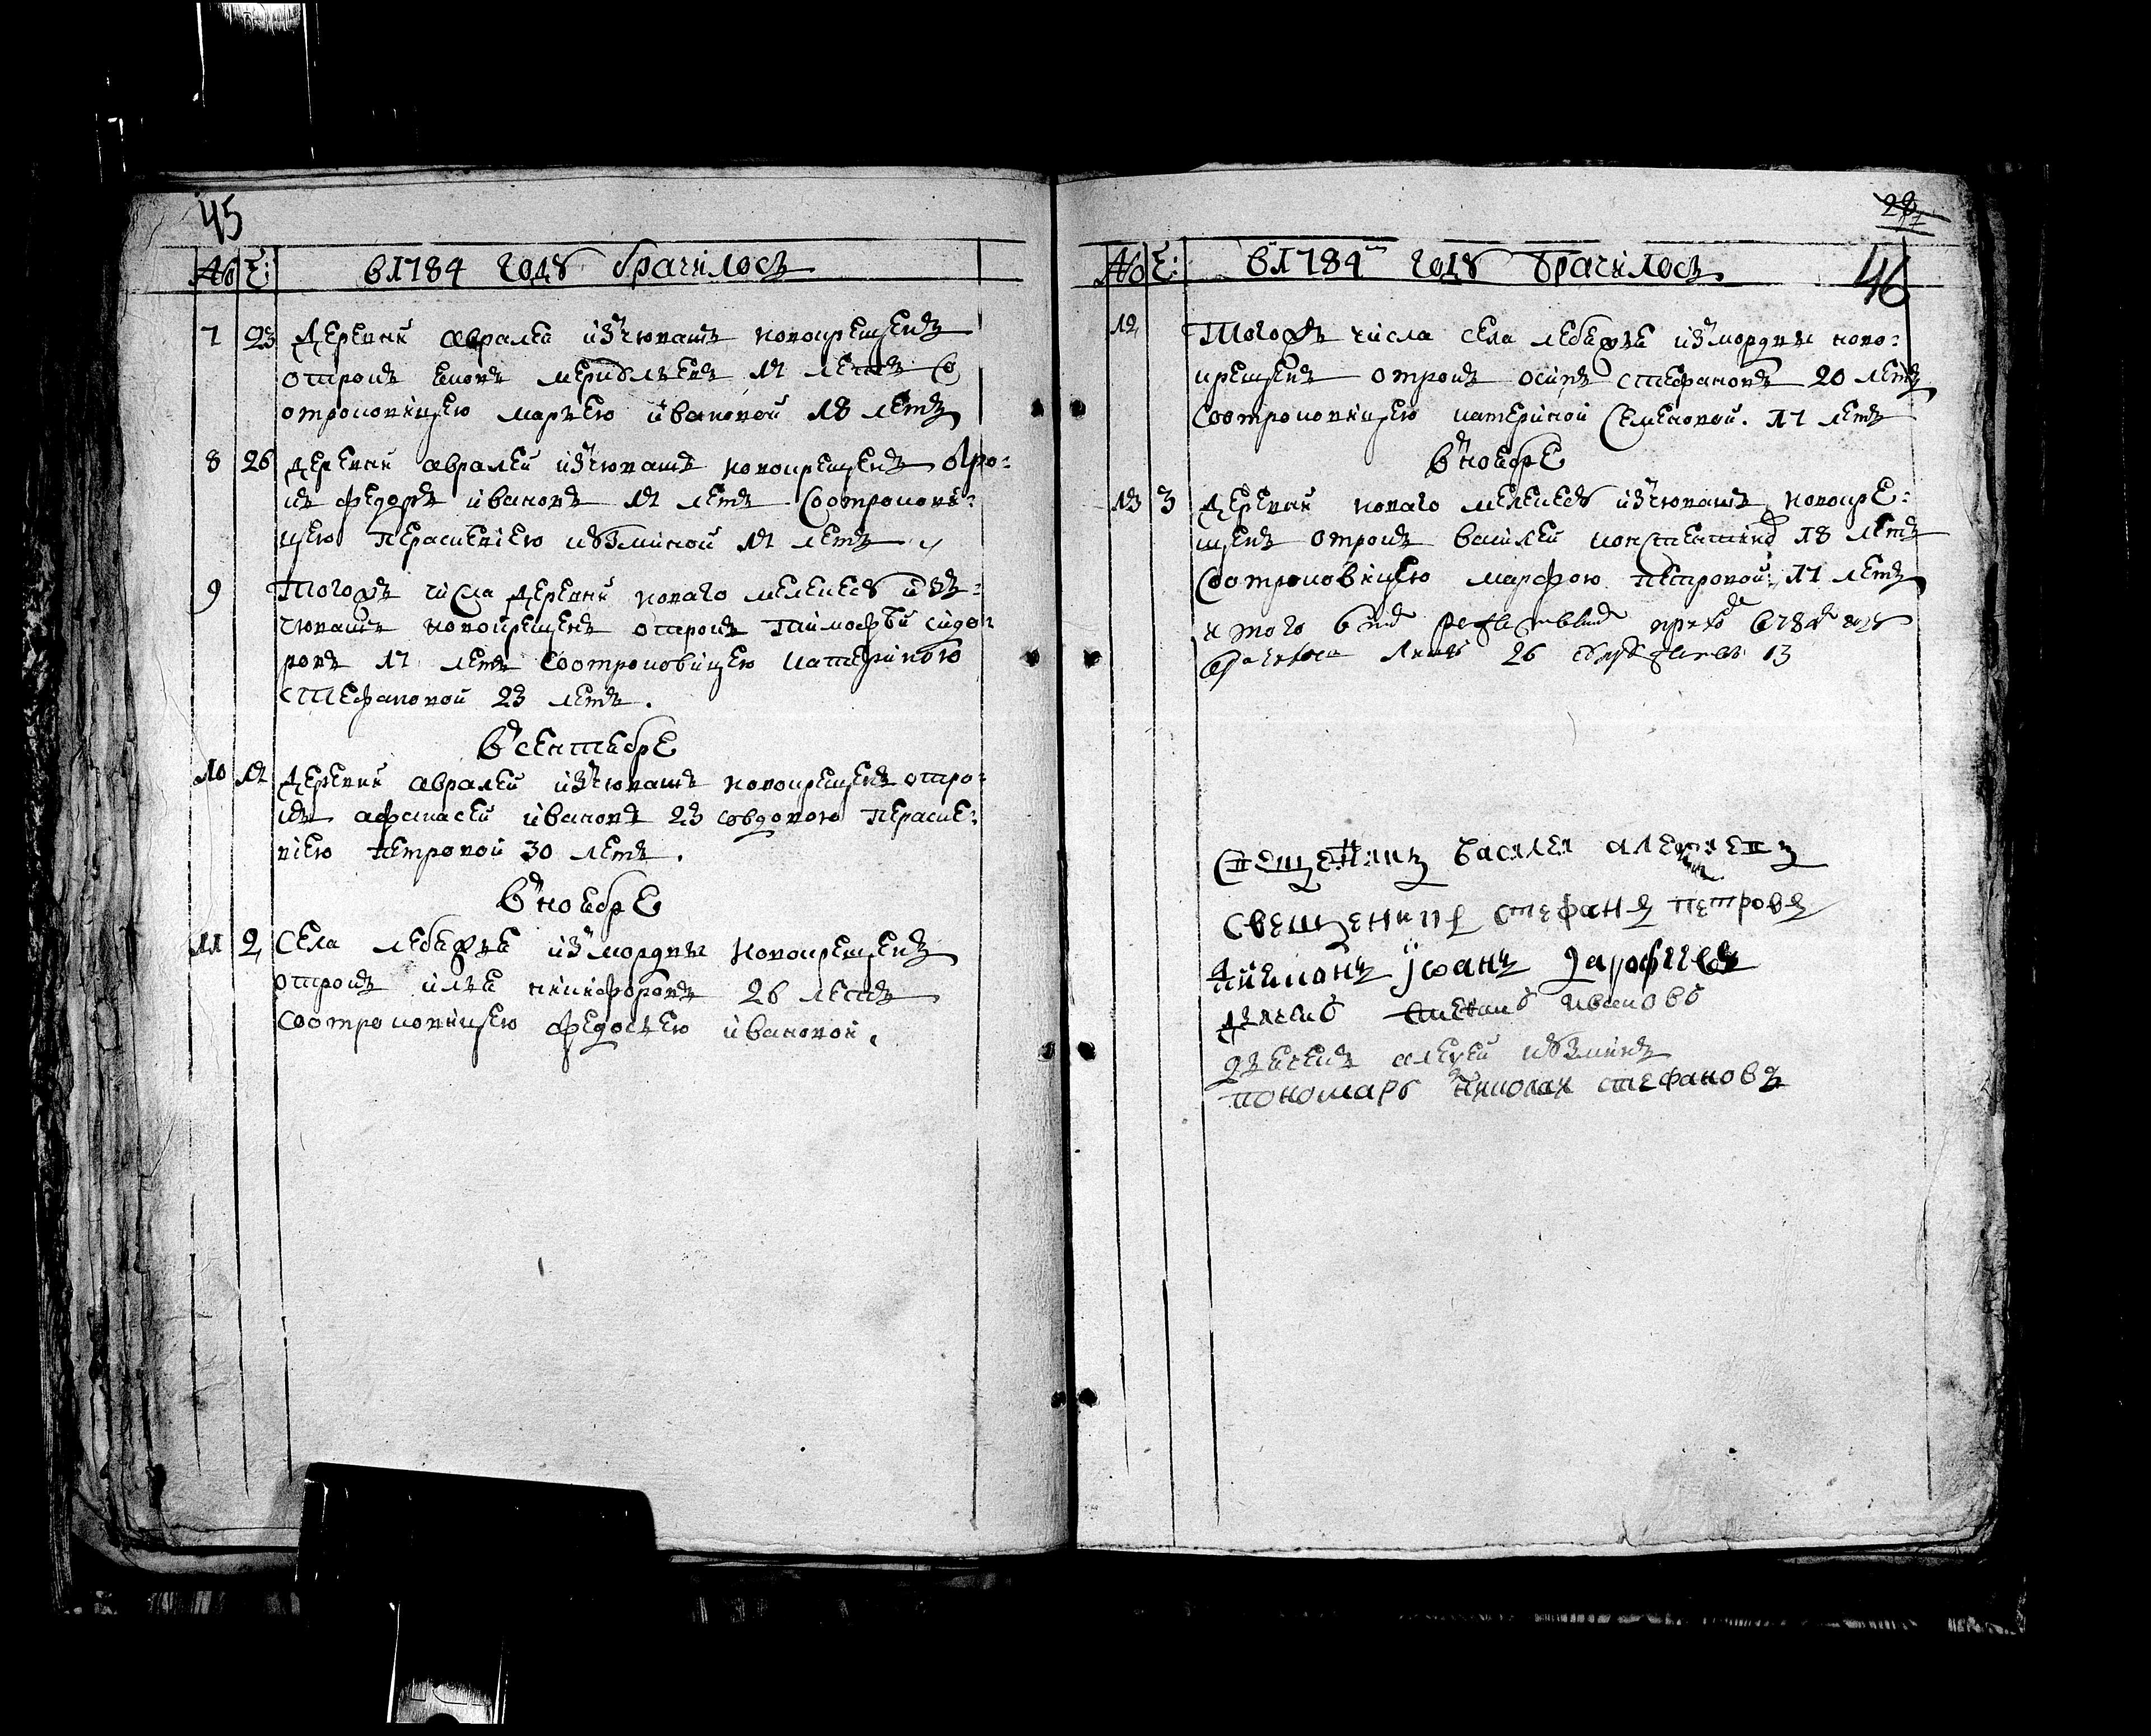 45
№ Ч: в 1784 годꙋ брачилосъ
7 23 Деревни авралей изъ чювашъ новокрещенъ
отрокъ
17 летъ со
отроковицею марьею ивановой 18 летъ
8 26 деревни авралей изъ чювашъ новокрещенъ отро=
къ федоръ ивановъ 17 летъ соотрокови=
цею параскевиею кꙋзминой 17 летъ
9 Тогожъ числа деревни новаго мелекесꙋ изъ=
чювашъ новокрещенъ отрокъ тимофѣй сидо=
ровъ 17 летъ соотроковицею катериною
стефановой 23 летъ.
въ сентябре
10 17 Деревни авралей изъ чювашъ новокрещенъ отро=
къ афанасей ивановъ 23 совдовою параске=
виею петровой 30 летъ.
въ ноябре
11 2 Села лебяжья изъ мордвы новокрещенъ
отрокъ илья никифоровъ 26 летъ
соотроковицею федосьею ивановой.
46
№ Ч: в 1784 годꙋ брачилосъ
12 Тогожъ числа села лебяжья изъ мордвы ново=
крещенъ отрокъ осипъ стефановъ 20 летъ
соотроковицею катериной семеновой. 17 летъ
въ ноябре
13 3 Деревни новаго мелекесꙋ изъ чювашъ новокре=
щенъ отрокъ василей констентинов 18 летъ
соотроковицею марфою петровой: 17 летъ
итого в
годꙋ
26 13
Священникъ Василей алексеевъ
священникъ стефанъ петровъ
диаконъ Iоанъ
дьячекъ ивановъ
дьячекъ алексей кꙋзминъ
пономарь николай стефановъ